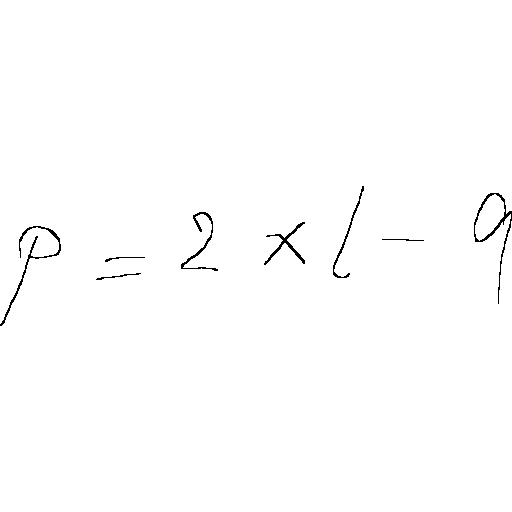 p = 2 × l - 9